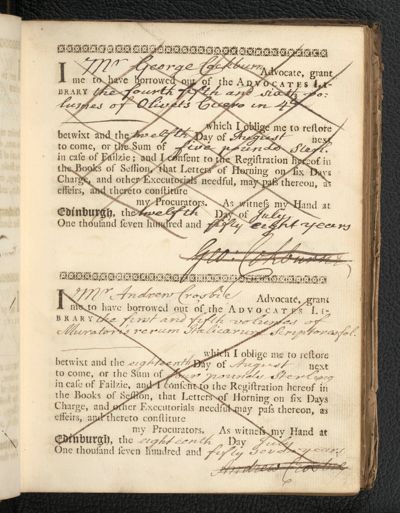 I Mr George Cockburn Advocate, grant
me to have borrowed out of the ADVOCATES LI-
BRARY the fourth fifth and sixth vo-
lumes of Olivet's Cicero in 4to
which I oblige me to restore
betwixt and the twelfth Day of August next
to come, or the Sum of five pounds Sterl.
in case of Failzie; and I consent to the Registration hereof in
the Books of Session, that Letters of Horning on six Days
Charge, and other Executorials needful, may pass thereon, as
effeirs, and thereto constitute
my Procurators. As witness my Hand at
Edinburgh, the twelfth Day of July
One thousand seven hundred and fifty eight years
Geo. Cockburn
I Mr Andrew Crosbie Advocate, grant
me to have borrowed out of the ADVOCATES LI-
BRARY the first and fifth volumes of
Muratori's rerum Italicarum Scriptores fol.
which I oblige me to restore
betwixt and the eighteenth Day of August next
to come, or the Sum of pounds Sterling
in case of Failzie, and I consent to the Registration hereof in
the Books of Session, that Letters of Horning on six Days
Charge, and other Executorials needful may pass thereon, as
effeirs, and thereto constitute
my Procurators. As witness my Hand at
Edinburgh, the eighteenth Day July
One thousand seven hundred and fifty years
Andrew Crosbie